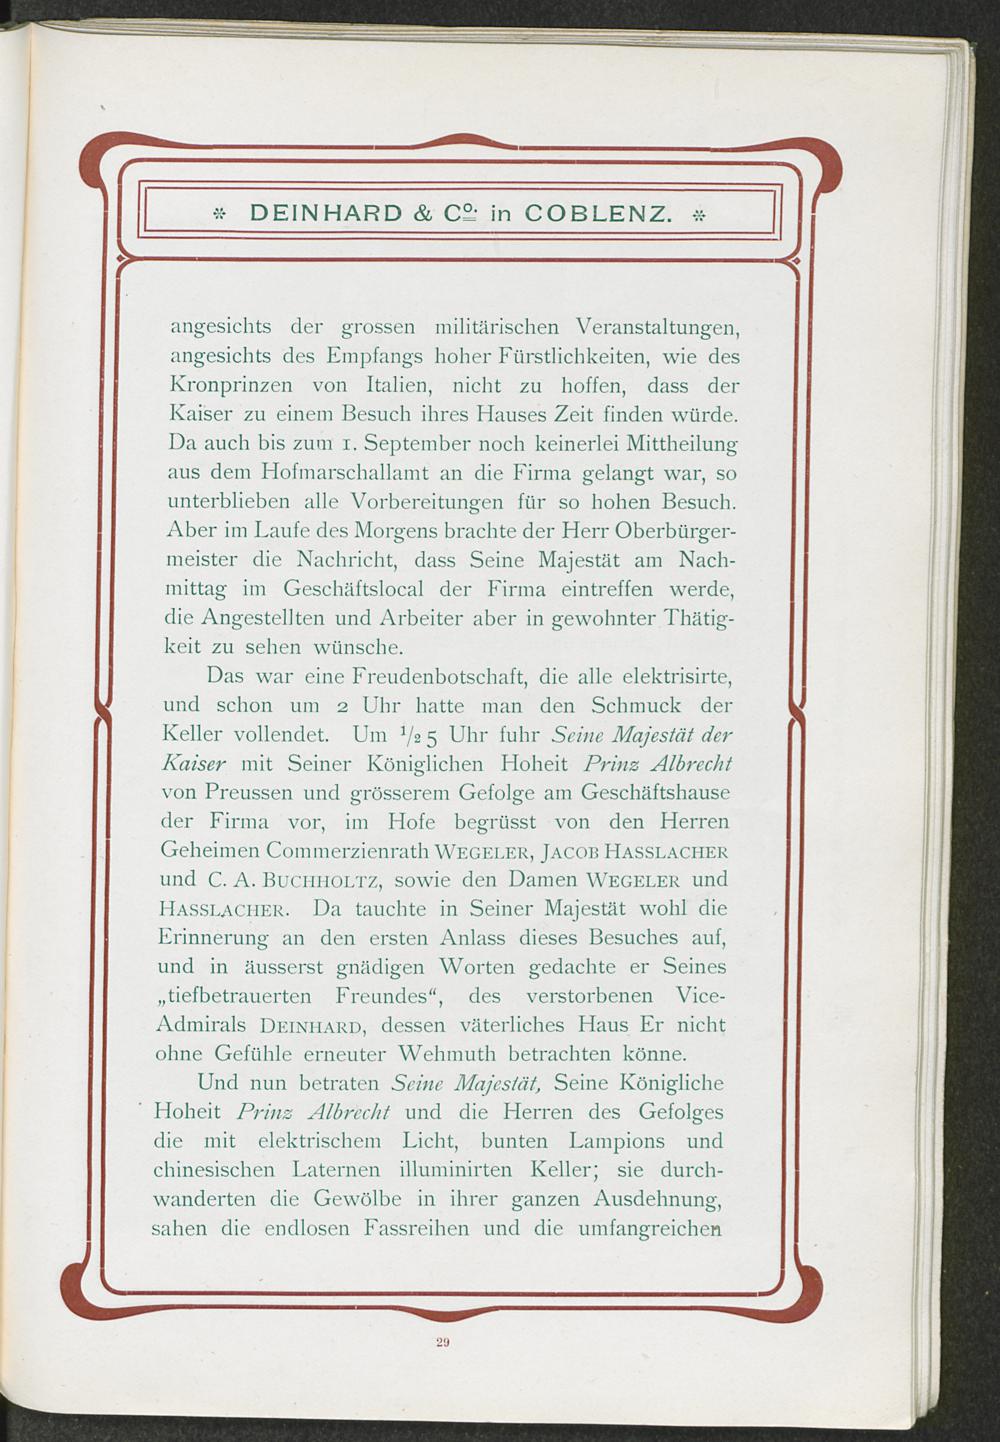 * DEINHARD & Cº. in COBLENZ. *
angesichts der grossen militärischen Veranstaltungen,
angesichts des Empfangs hoher Fürstlichkeiten, wie des
Kronprinzen von Italien, nicht zu hoffen, dass der
Kaiser zu einem Besuch ihres Hauses Zeit finden würde.
Da auch bis zum 1. September noch keinerlei Mittheilung
aus dem Hofmarschallamt an die Firma gelangt war, so
unterblieben alle Vorbereitungen für so hohen Besuch.
Aber im Laufe des Morgens brachte der Herr Oberbürger-
meister die Nachricht, dass Seine Majestät am Nach-
mittag im Geschäftslocal der Firma eintreffen werde,
die Angestellten und Arbeiter aber in gewohnter Thätig-
keit zu sehen wünsche.
Das war eine Freudenbotschaft, die alle elektrisirte,
und schon um 2 Uhr hatte man den Schmuck der
Keller vollendet. Um 1/2 5 Uhr fuhr Seine Majestät der
Kaiser mit Seiner Königlichen Hoheit Prinz Albrecht
von Preussen und grösserem Gefolge am Geschäftshause
der Firma vor, im Hofe begrüsst von den Herren
Geheimen Commerzienrath WEGELER, JACOB HASSLACHER
und C. A. BUCHHOLTZ, sowie den Damen WEGELER und
HASSLACHER. Da tauchte in Seiner Majestät wohl die
Erinnerung an den ersten Anlass dieses Besuches auf,
und in äusserst gnädigen Worten gedachte er Seines
„tiefbetrauerten Freundes“, des verstorbenen Vice-
Admirals DEINHARD, dessen väterliches Haus Er nicht
ohne Gefühle erneuter Wehmuth betrachten könne.
Und nun betraten Seine Majestät, Seine Königliche
Hoheit Prinz Albrecht und die Herren des Gefolges
die mit elektrischem Licht, bunten Lampions und
chinesischen Laternen illuminirten Keller; sie durch-
wanderten die Gewölbe in ihrer ganzen Ausdehnung,
sahen die endlosen Fassreihen und die umfangreichen
29